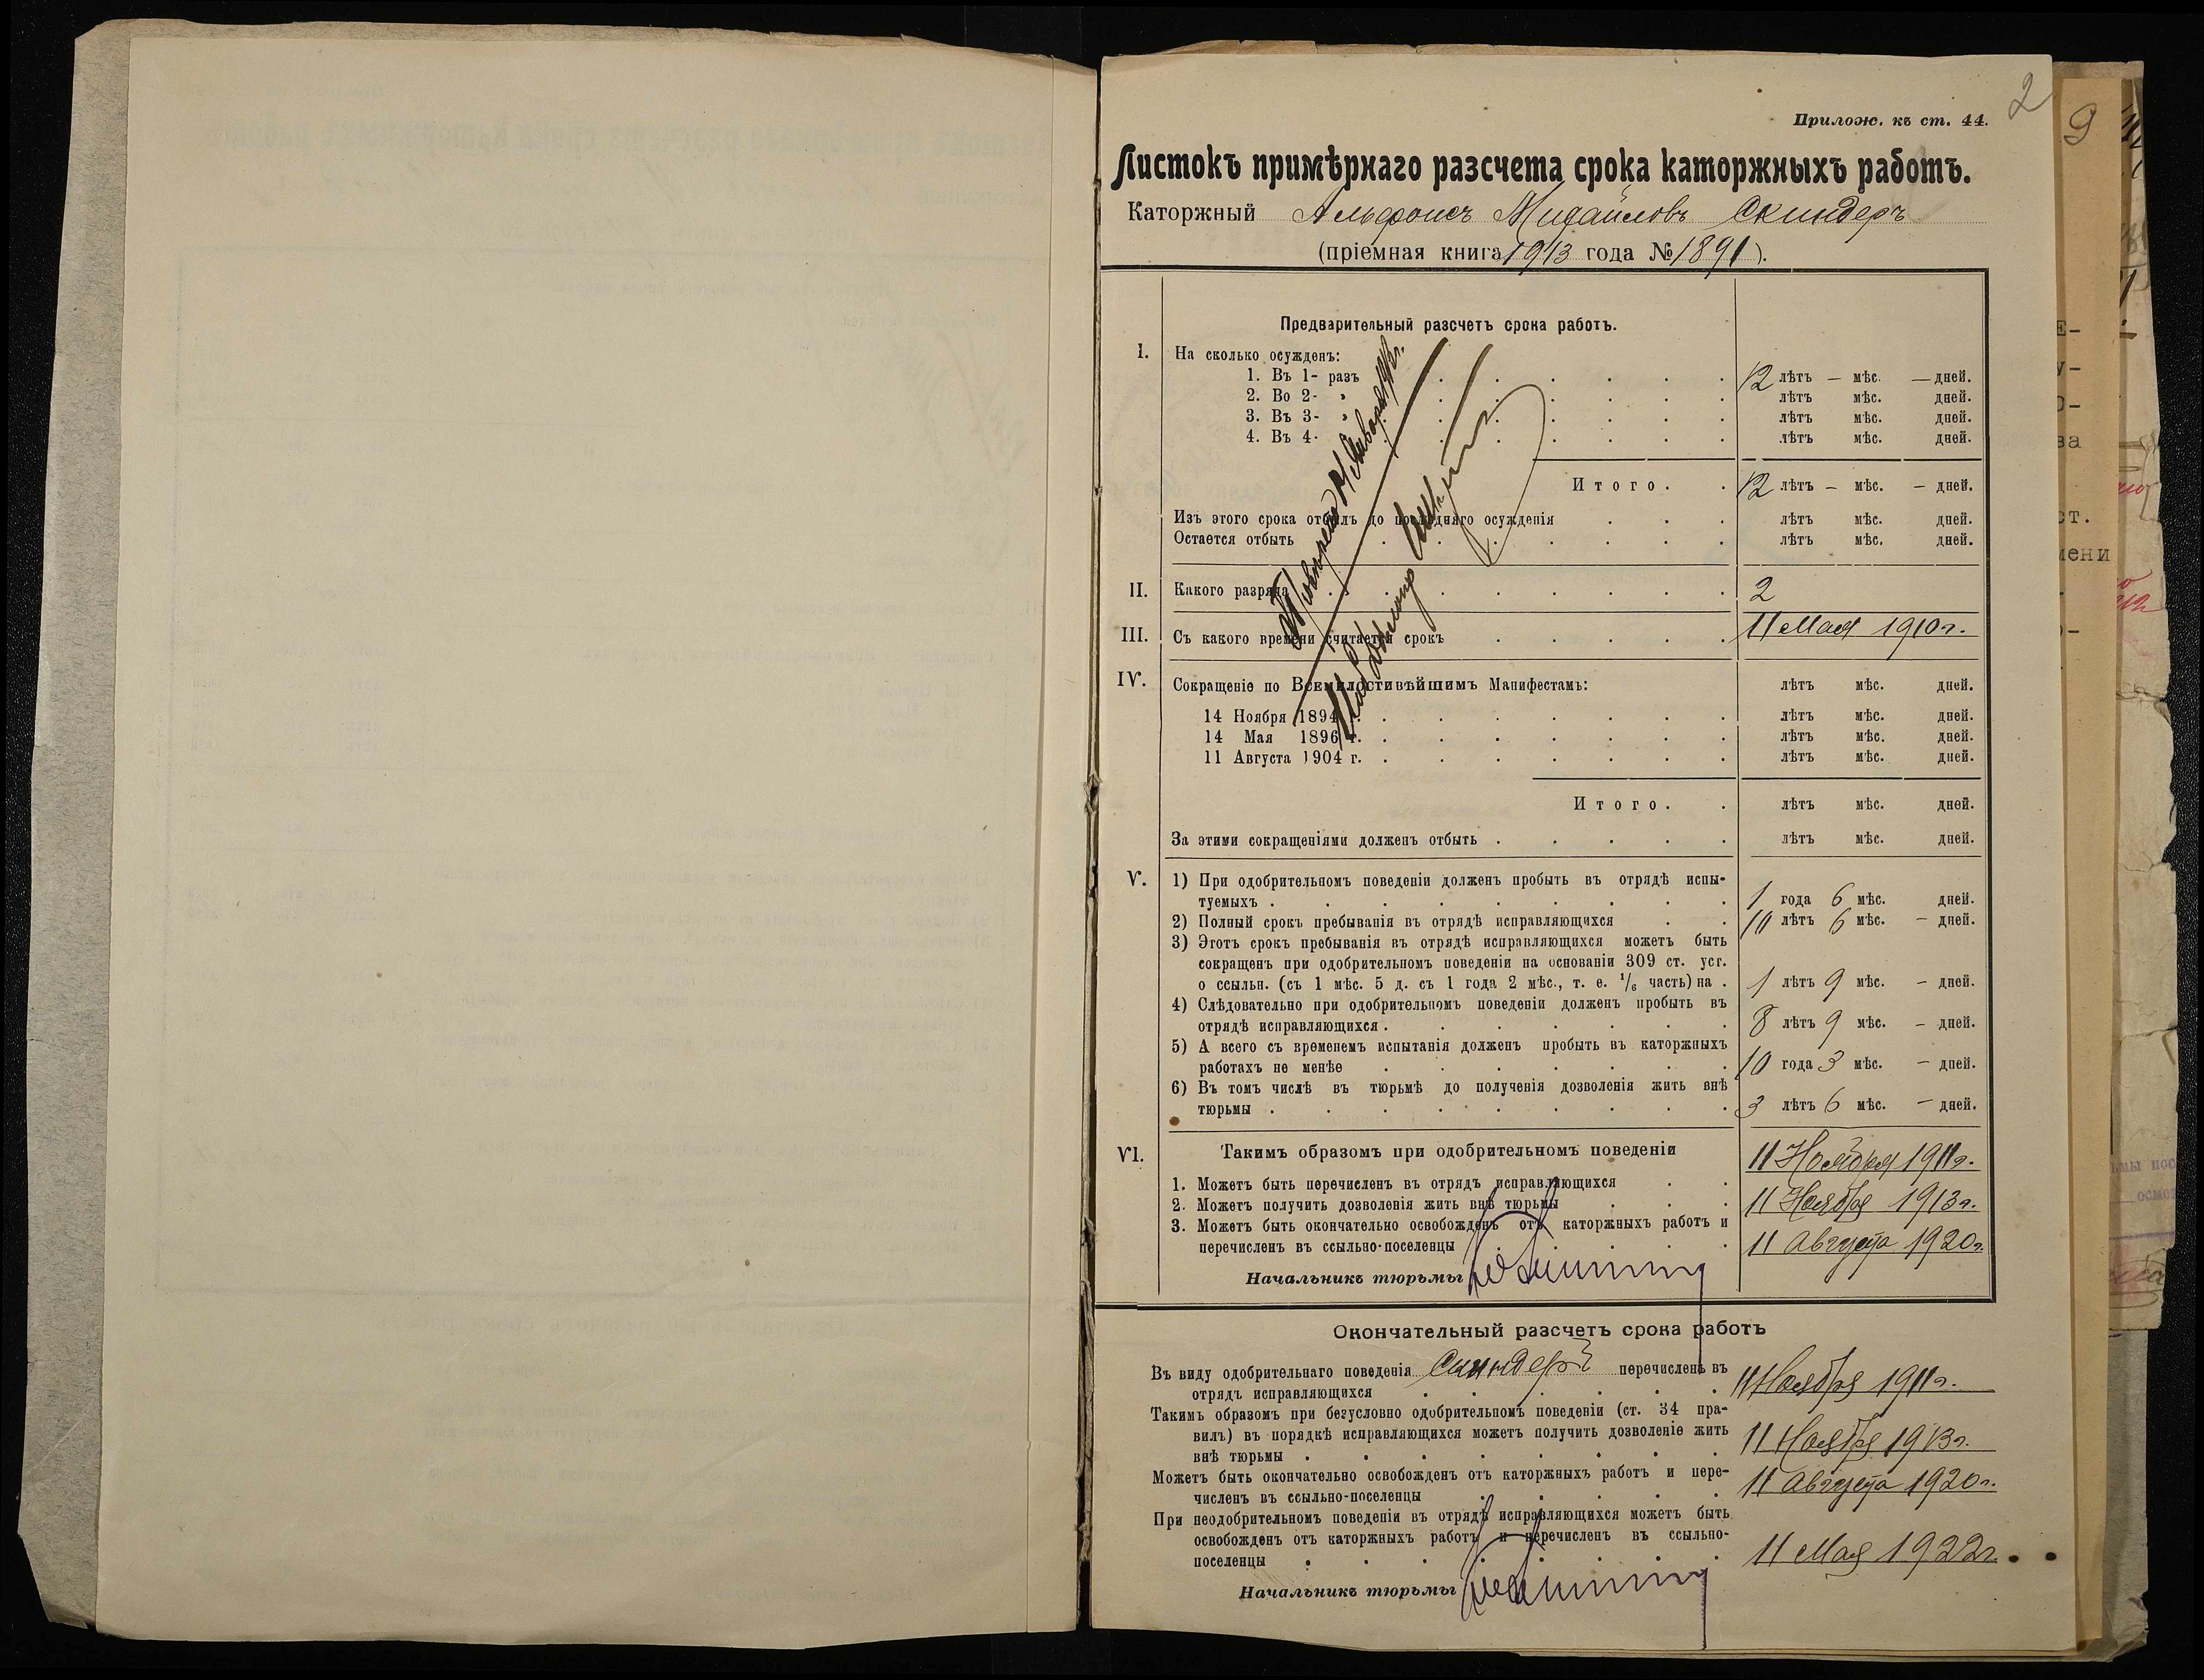 2
9
Прилож. къ ст. 44.
Листокъ примѣрнаго разсчета срока каторжныхъ работъ.
Каторжный Альфонсъ Михайловъ Скиндеръ
(пріемная книга 1913 года № 1891).
Предварительный разсчетъ срока работъ.
I. На сколько осужденъ:
1. Въ 1- разъ 12 лѣтъ — мѣс. — дней.
2. Во 2- „ лѣтъ мѣс. дней.
3. Въ 3- „ лѣтъ мѣс. дней.
4. Въ 4- лѣтъ мѣс. дней.
Итого. 12 лѣтъ — мѣс. — дней.
Изъ этого срока отбылъ до послѣдняго осужденія лѣтъ мѣс. дней.
Остается отбыть лѣтъ мѣс. дней.
II. Какого разряда 2
III. Съ какого времени считается срокъ 11 Мая 1910 г.
IV. Сокращеніе по Всемилостивѣйшимъ Манифестамъ: лѣтъ мѣс. дней.
14 Ноября 1894 г. лѣтъ мѣс. дней.
14 Мая 1896 г. лѣтъ мѣс. дней.
11 Августа 1904 г. лѣтъ мѣс. дней.
Итого. лѣтъ мѣс. дней.
За этими сокращеніями долженъ отбыть лѣтъ мѣс. дней.
V. 1) При одобрительномъ поведеніи долженъ пробыть въ отрядѣ испы-
туемыхъ 1 года 6 мѣс. дней.
2) Полный срокъ пребыванія въ отрядѣ исправляющихся 10 лѣтъ 6 мѣс. — дней.
3) Этотъ срокъ пребыванія въ отрядѣ исправляющихся можетъ быть
сокращенъ при одобрительномъ поведеніи на основаніи 309 ст. уст.
о ссыльн. (съ 1 мѣс. 5 д. съ 1 года 2 мѣс., т. е. 1/6 часть) на 1 лѣтъ 9 мѣс. — дней.
4) Слѣдовательно при одобрительномъ поведеніи долженъ пробыть въ
отрядѣ исправляющихся 8 лѣтъ 9 мѣс. — дней.
5) А всего съ временемъ испытанія долженъ пробыть въ каторжныхъ
работахъ не менѣе 10 года 3 мѣс. — дней.
6) Въ томъ числѣ въ тюрьмѣ до полученія дозволенія жить внѣ
тюрьмы 3 лѣтъ 6 мѣс. — дней.
VI. Такимъ образомъ при одобрительномъ поведеніи
1. Можетъ быть перечисленъ въ отрядъ исправляющихся 11 Ноября 1911 г.
2. Можетъ получить дозволенія жить внѣ тюрьмы 11 Ноября 1913 г.
3. Можетъ быть окончательно освобожденъ отъ каторжныхъ работъ и
перечисленъ въ ссыльно-поселенцы 11 Августа 1920 г.
Начальникъ тюрьмы
Окончательный разсчетъ срока работъ
Въ виду одобрительнаго поведенія Скиндеръ перечисленъ въ
отрядъ исправляющихся 11 Ноября 1911 г.
Такимъ образомъ при безусловно одобрительномъ поведеніи (ст. 34 пра-
вилъ) въ порядкѣ исправляющихся можетъ получить дозволеніе жить
внѣ тюрьмы 11 Ноября 1913 г.
Можетъ быть окончательно освобожденъ отъ каторжныхъ работъ и пере-
численъ въ ссыльно-поселенцы 11 Августа 1920 г.
При неодобрительномъ поведеніи въ отрядѣ исправляющихся можетъ быть
освобожденъ отъ каторжныхъ работъ и перечисленъ въ ссыльно-
поселенцы 11 Мая 1922 г.
Начальникъ тюрьмы